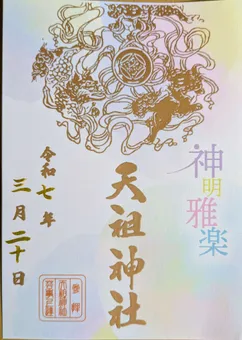 神明雅楽
天祖神社
令和七年
三月二十日